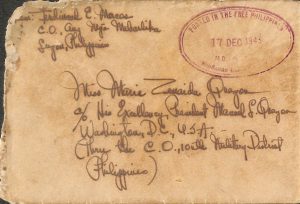 C.O.
Philippines
POSTED IN THE FREE PHILIPPINES
17 DEC 1943
M.D.
Miss Maria Zenaida Quezon
c/o His Excellency, President Manuel L. Quezon
Washington, D.C., U.S.A.
Thru the C.O., 10th Military District
(Philippines)